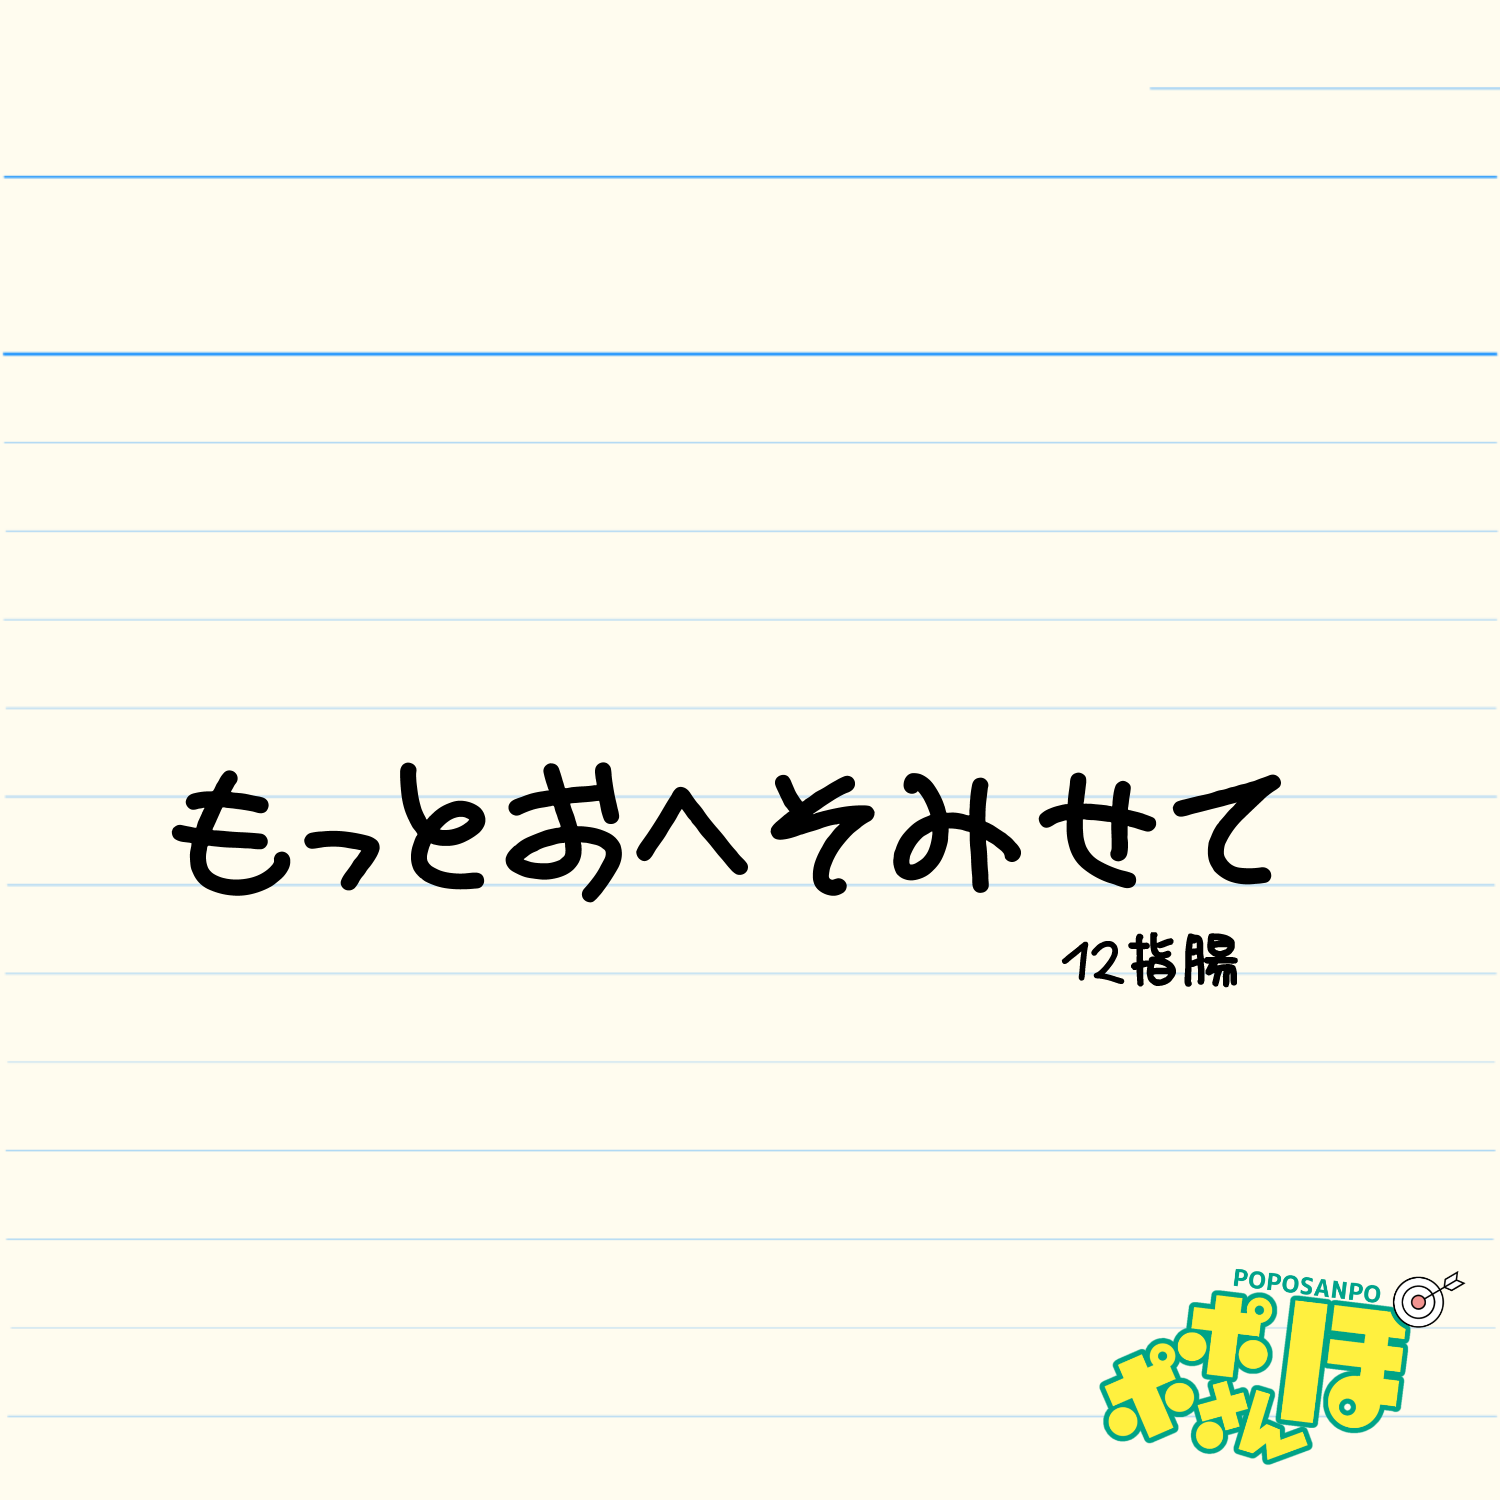 もっとおへそみせて
12指腸
POPOSANPO
ポポさんぽ